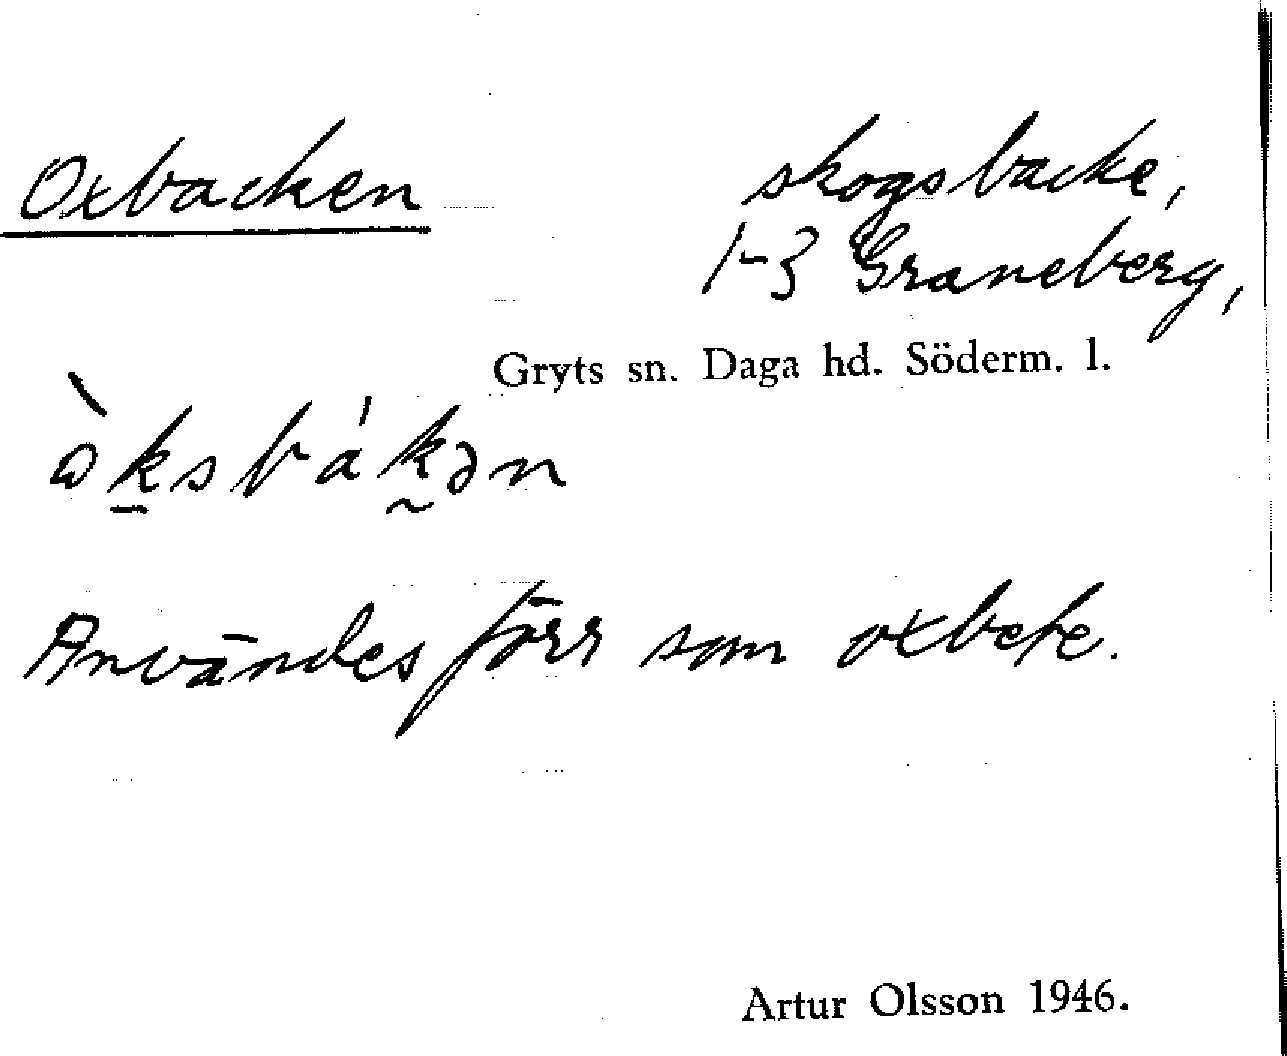 Oxbacken
skogsbacke,
1-3 Graneberg,
Gryts sn. Daga hd. Söderm. l.
ὼk̲sbák̰ən
Användes förr som oxbete.
Artur Olsson 1946.